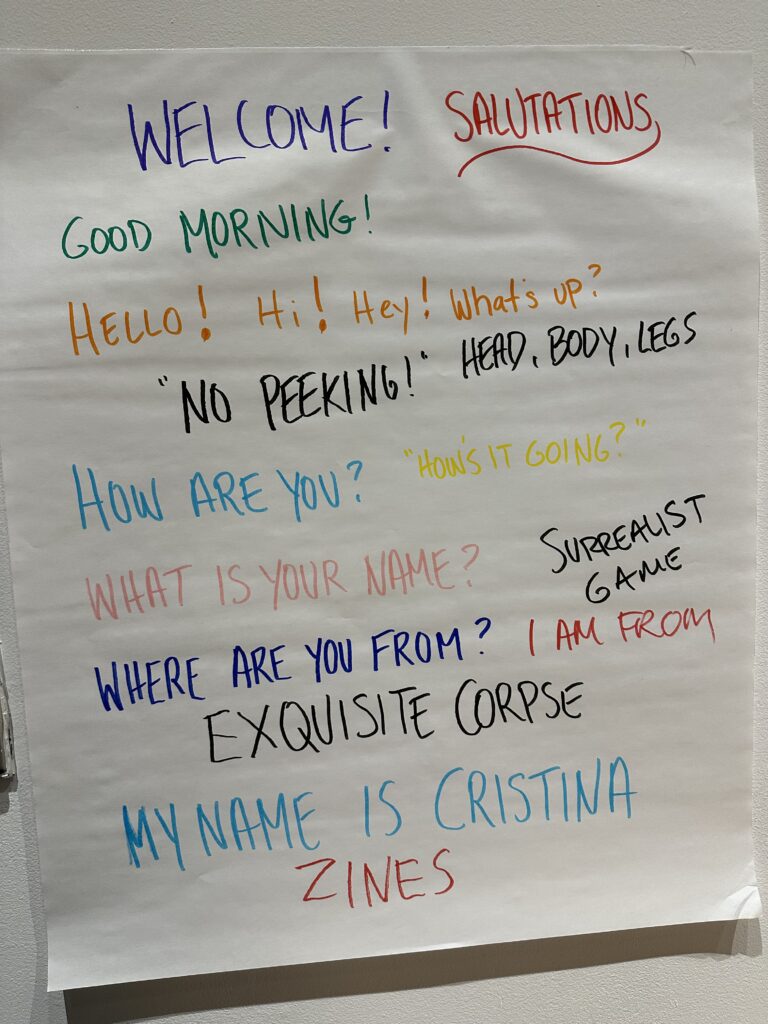 WELCOME! SALUTATIONS
GOOD MORNING!
HELLO! Hi! Hey! What's up?
"NO PEEKING!" HEAD, BODY, LEGS
HOW ARE YOU? "HOW'S IT GOING?"
WHAT IS YOUR NAME? SURREALIST
GAME
WHERE ARE YOU FROM? I AM FROM
EXQUISITE CORPSE
MY NAME IS CRISTINA
ZINES